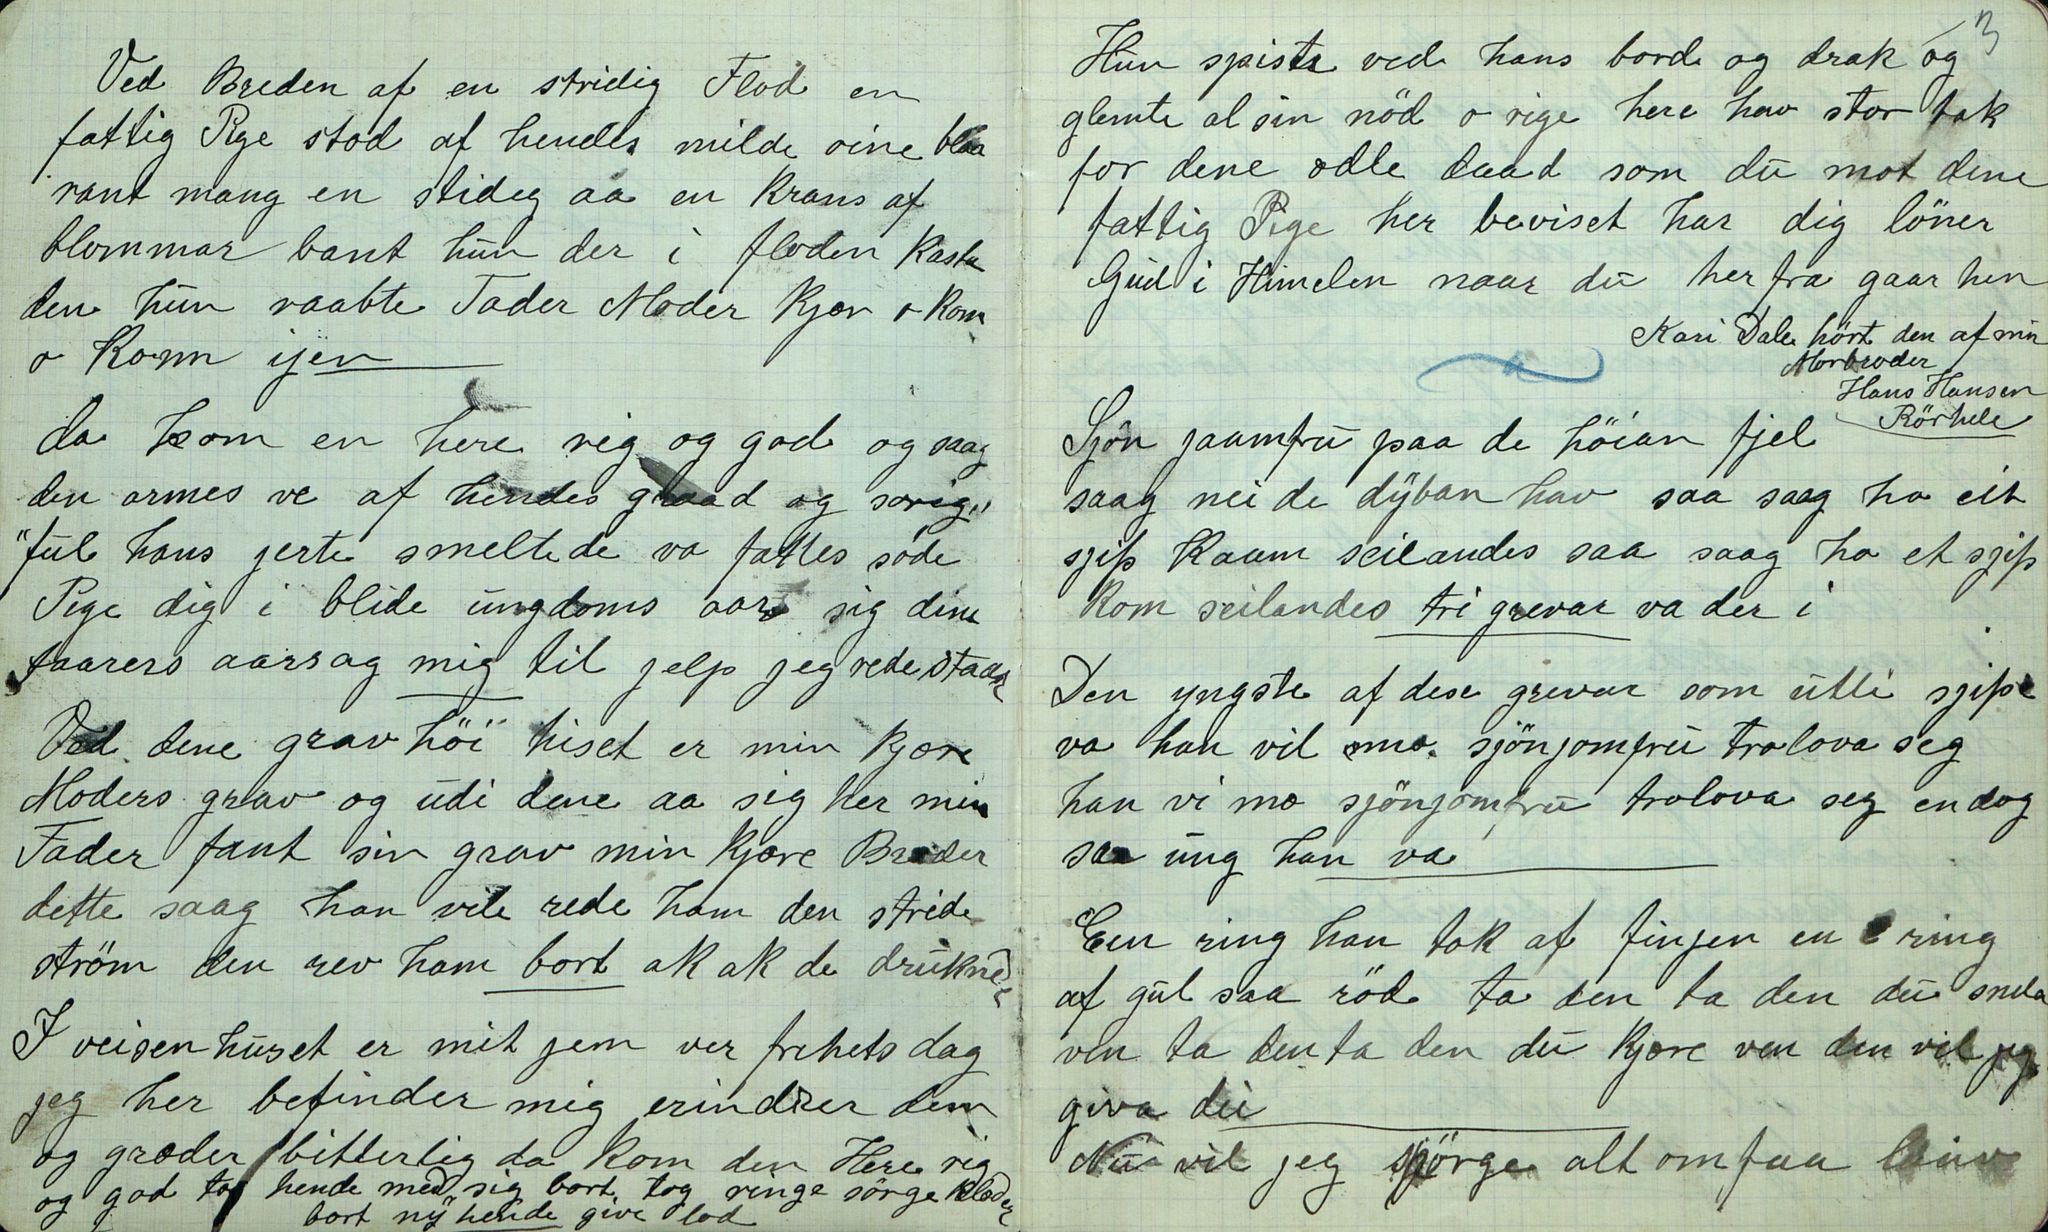 Ved Breden af en stridig Flod en
fattig Pige stod af hendes milde öine blaa
rant mang en stideg aa en Krans af
blommar bant hun der i floden Kasta
den hun raabte Fader Moder Kjær o Kom
o Kom ijen
da kom en here rig og god og saag
den armes ve af hendes graad og sorig"
"ful hans jerte smeltede va fattes söde
Pige dig i blide ungdoms aar sig dine
taarers aarsag mig til jelp jeg rede staar
Ved dene grav höi hiset er min kjære
Moders grav og udi dene aa sig her min
Fader fant sin grav min Kjære Broder
dette saag han vile rede ham den stride
ström den rev ham bort ak ak de druknede
I veisenhuset er mit jem ver frihets dag
jeg her befinder mig erindrer dem
og græder bitterlig da Kom den Here rig
og god tog hende med sig bort tog ringe sörge klæder
bort ny hende give lod
3
Hun spiste ved hans bord og drak og
glemte al sin nöd o rige here hav stor tak
for dene ædle daad som du mot dene
fattig Pige her beviset har dig löner
Gud i Himelen naar du her fra gaar hen
Kari Dale hört den af min
Morbroder
Hans Hansen
Rörhele
Sjön jaamfru paa de höian fjel
saag nei de dyban hav saa saag ho eit
sjip Kaam seilandes saa saag ho et sjip
Kom seilandes tri grevar va der i
Den yngste af dese grevar som utti sjipe
va han vil mæ sjönjomfru trolova seg
han vi mæ sjönjomfru trolova seg endog
saa ung han va
Een ring han tok af finjen en ring
af gul saa röd ta den ta den du snila
ven ta den ta den du Kjære ven den vil jeg
giva di
Nu vil jeg spörge alt om faa